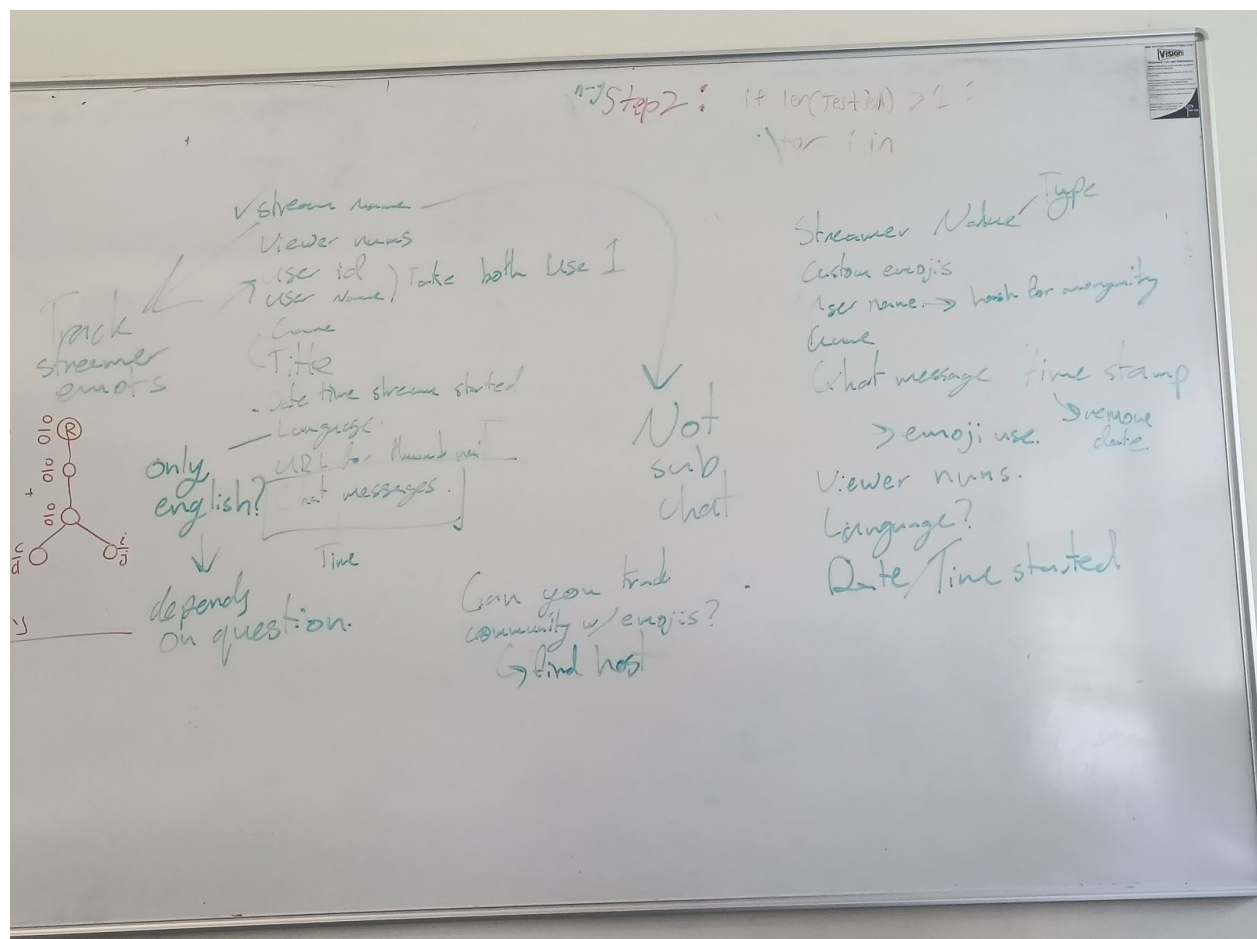 Step2:
if len(Tested) > 1 :
for i in
✓ stream name
Viewer nums
User id
User Name) Take both Use 1
Game
Title
Date time stream started
Language
URL for thumbnail
messages.
Time
Track
streamer
emots
R
0/0
0/0
0/0
+
c/d
i/j
only
english?
depends
on question.
Not
sub
chat
Can you track
community w/ emojis?
↳ find host
Streamer Name Type
Custom emojis
User name → hash for anonymity
Game
Chat message time stamp
→ emoji use. ↳ remove
date.
Viewer nums.
Language?
Date/Time started
Vision